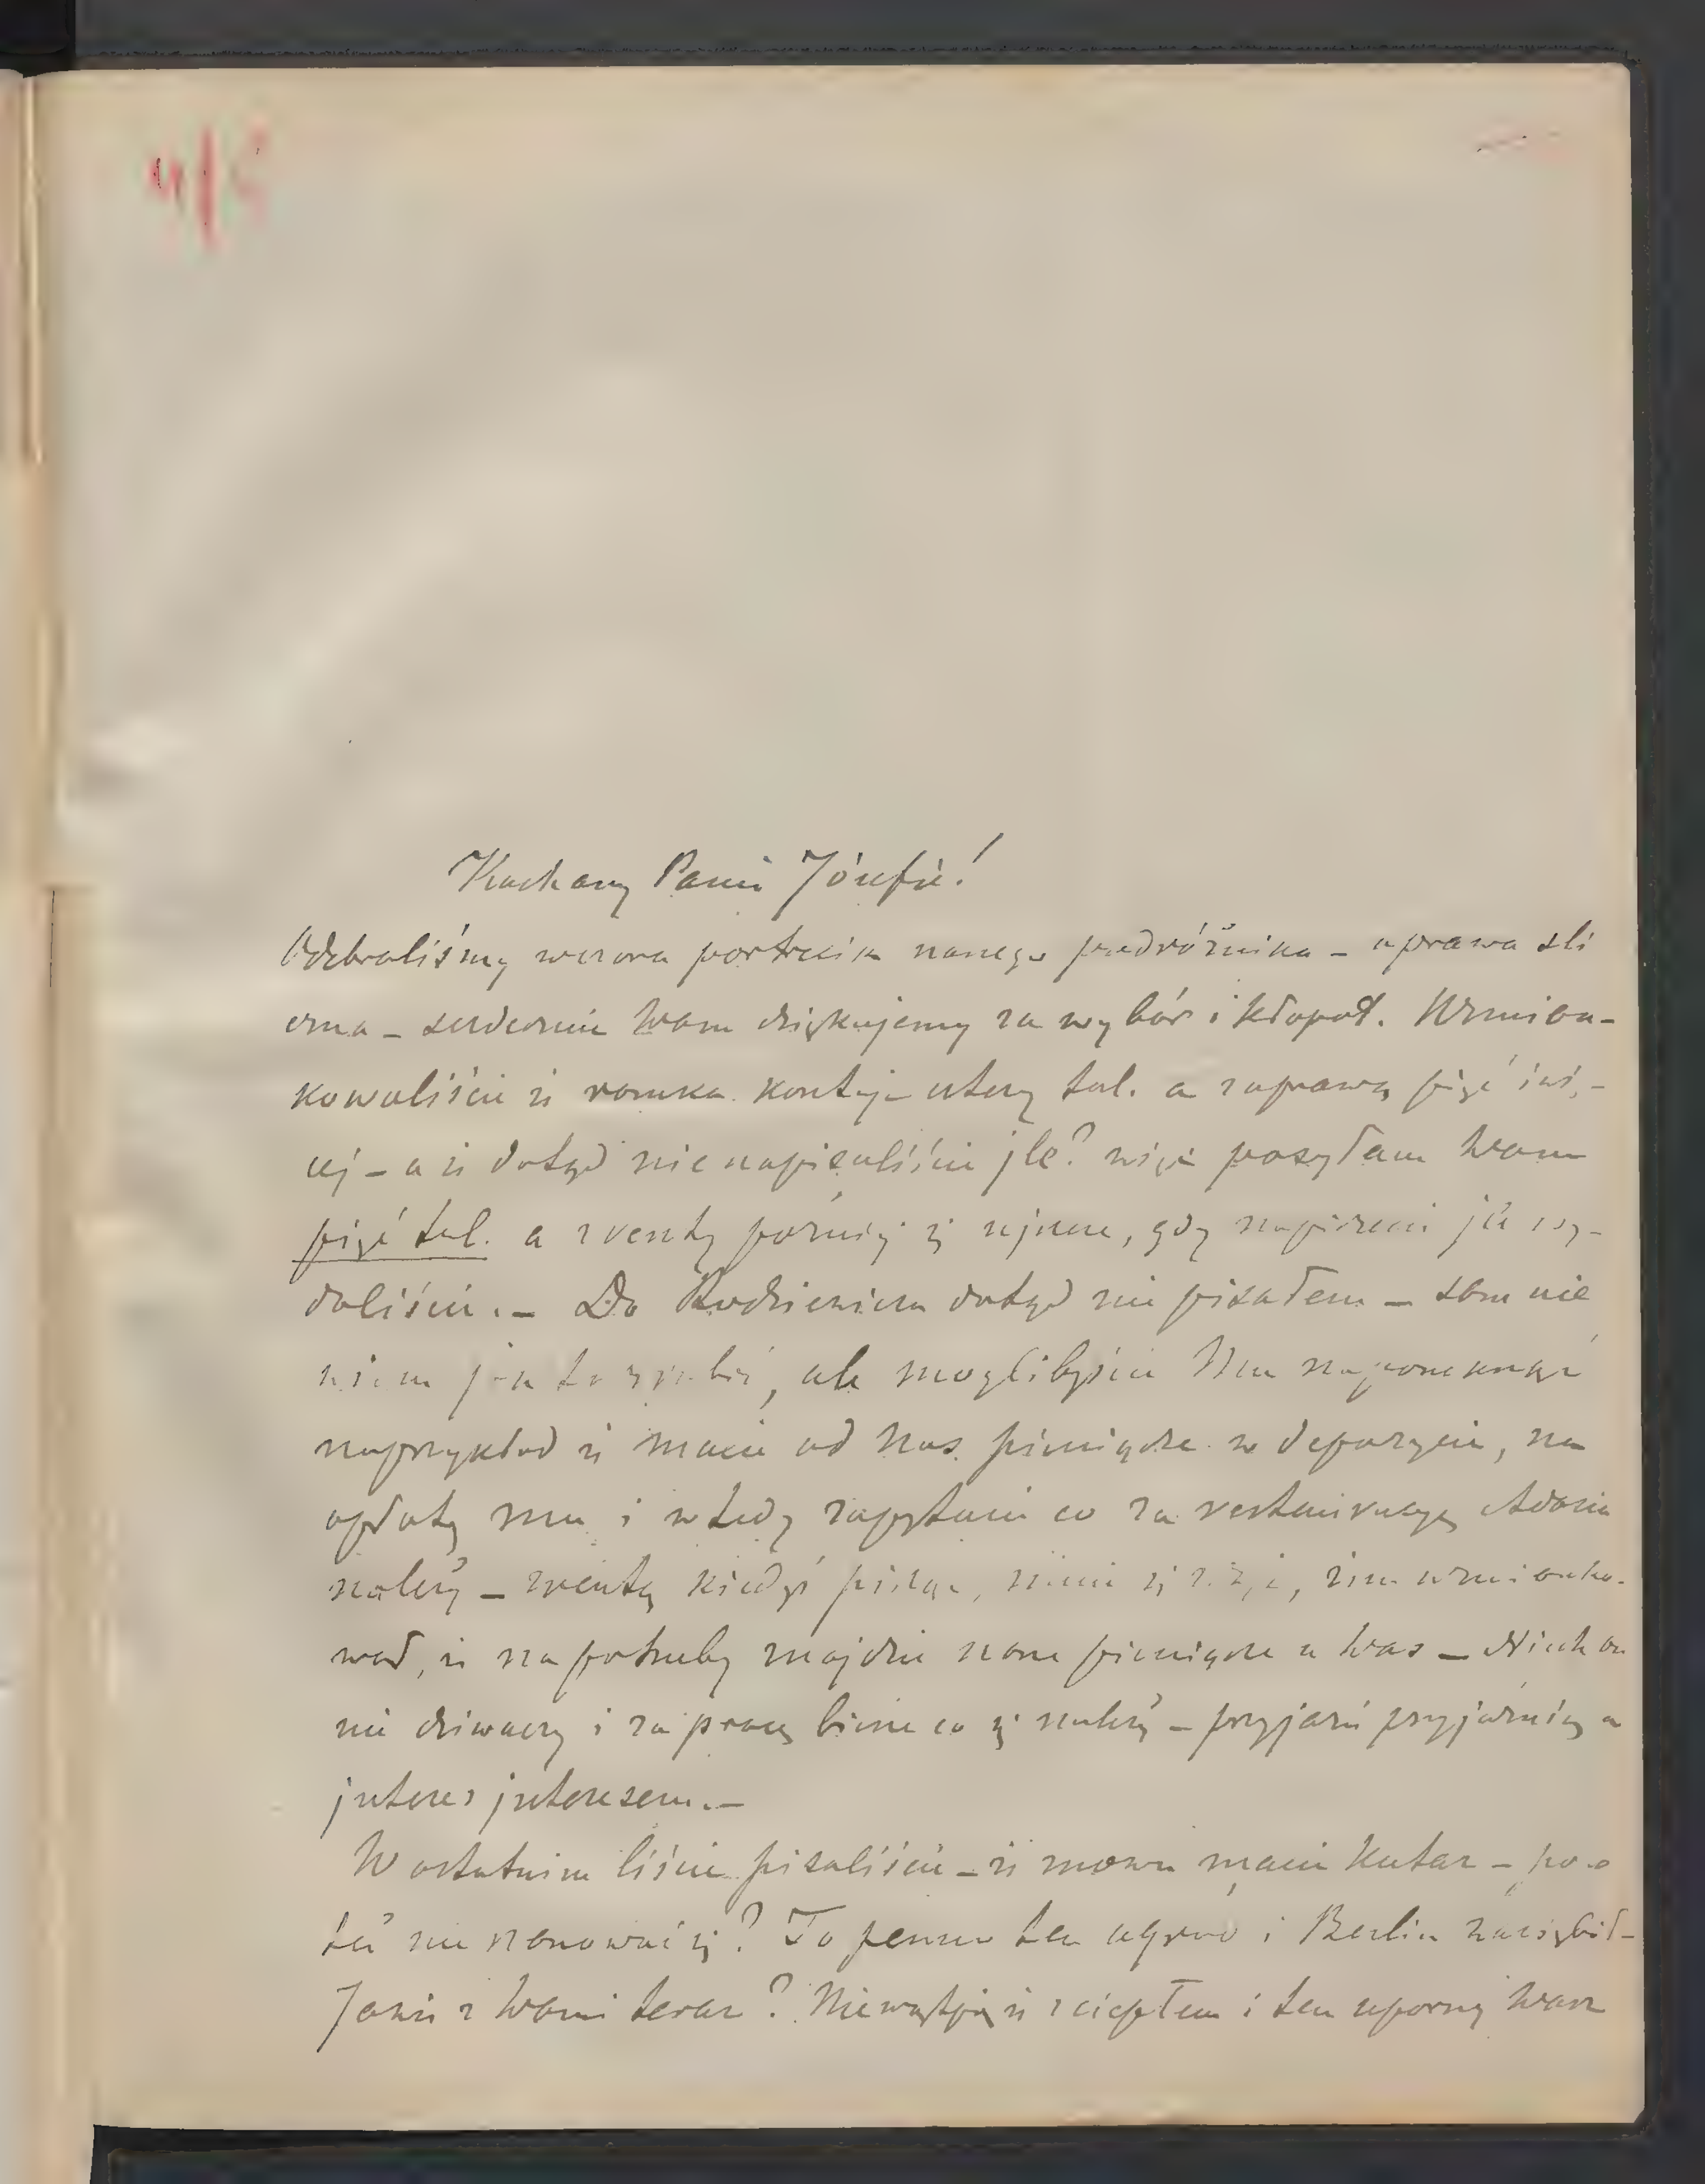 Kochany Panie Józefie!
Odebraliśmy wczora portrecik naszego podróżnika – oprawa śli
czna – serdecznie Wam dziękujemy za wybór i kłopot. Wzmian-
kowaliście iż ramka kosztuje cztery tal. a z oprawą pięć i wię-
cej – a iż dotąd nie napisaliście jle? więc posyłam Wam
pięć tal. a z resztą później się ujszcze, gdy napiszecie jeż wy-
daliście. – Do Rodziewicza dotąd nie pisałem – sam nie
wiem jak to zrobić, ale moglibyście Mu napomknąć
naprzykład iż macie od nas pieniądze w depozycie, na
opłatę mu i wtedy zapytacie co za restauracyę Adasia
należy – zresztą kiedyś pisząc,
wał, iż na potrzeby znajdzie nasze pieniądze u Was – Niech on
nie dziwaczy i za pracę bierze co się należy – przyjaźń przyjaźnią a
jnteres jnteresem. –
W ostatnim liście pisaliście – iż znowu macie katar –
też nie szanować się? To pewno ten ogród i Berlin zaziębił –
Jakże z Wami teraz? Niewątpię iż z ciepłem i ten uporny Wasz